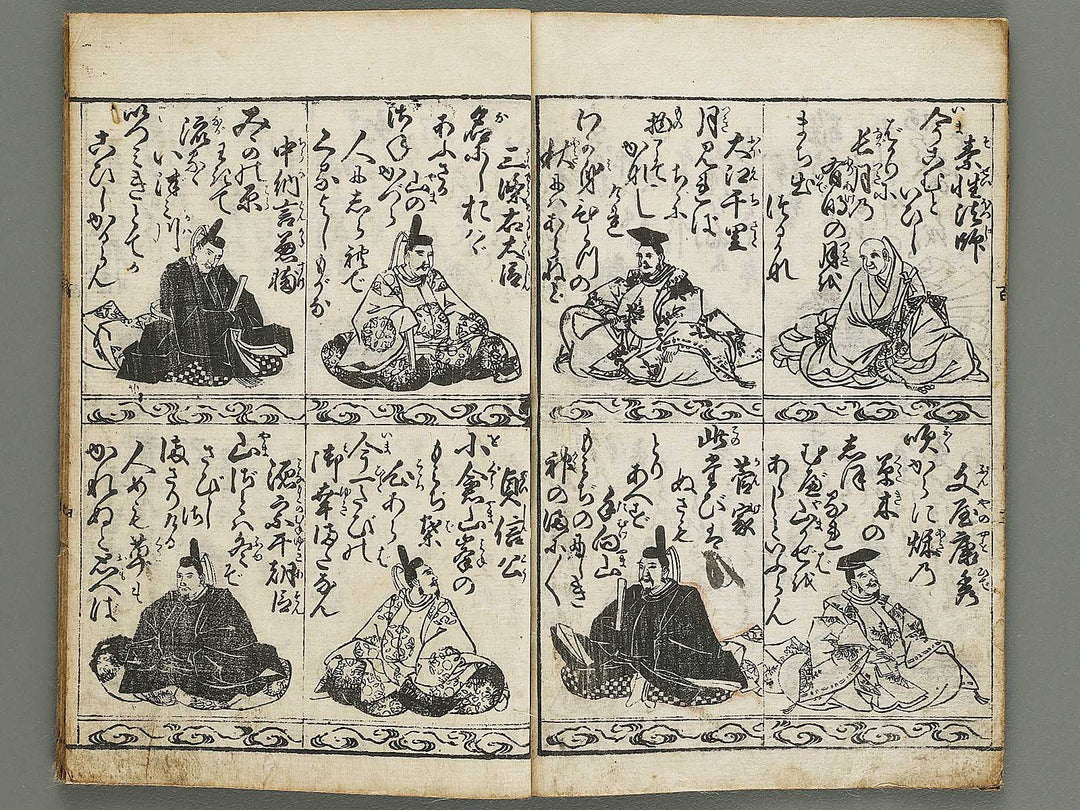 素性法師
今こむと
いひし
ばかりに
長月の
有明の月を
まち出
つるかな
文屋康秀
吹からに秌の
草木の
しほ
るれば
むべ山かぜを
あらしといふらん
大江千里
月見れば
ちゞに
物こそ
かなし
けれ
わが身ひとつの
秋にはあらねど
菅家
此たびは
ぬさも
とり
あへず
手向山
もみぢのにしき
神のまに〱
三條右大臣
名にしおはゞ
あふさか
山の
さね
かづら
人にしられで
くるよしもがな
貞信公
小倉山峯の
もみぢ葉
心あらば
今一たびの
御幸またなん
中納言兼輔
みかの原
わきて
流るゝ
いづみ川
いつみきとてか
こひしかるらん
源宗于朝臣
山ざとは冬ぞ
さびし
さ
まさりける
人めも草も
かれぬとおもへば